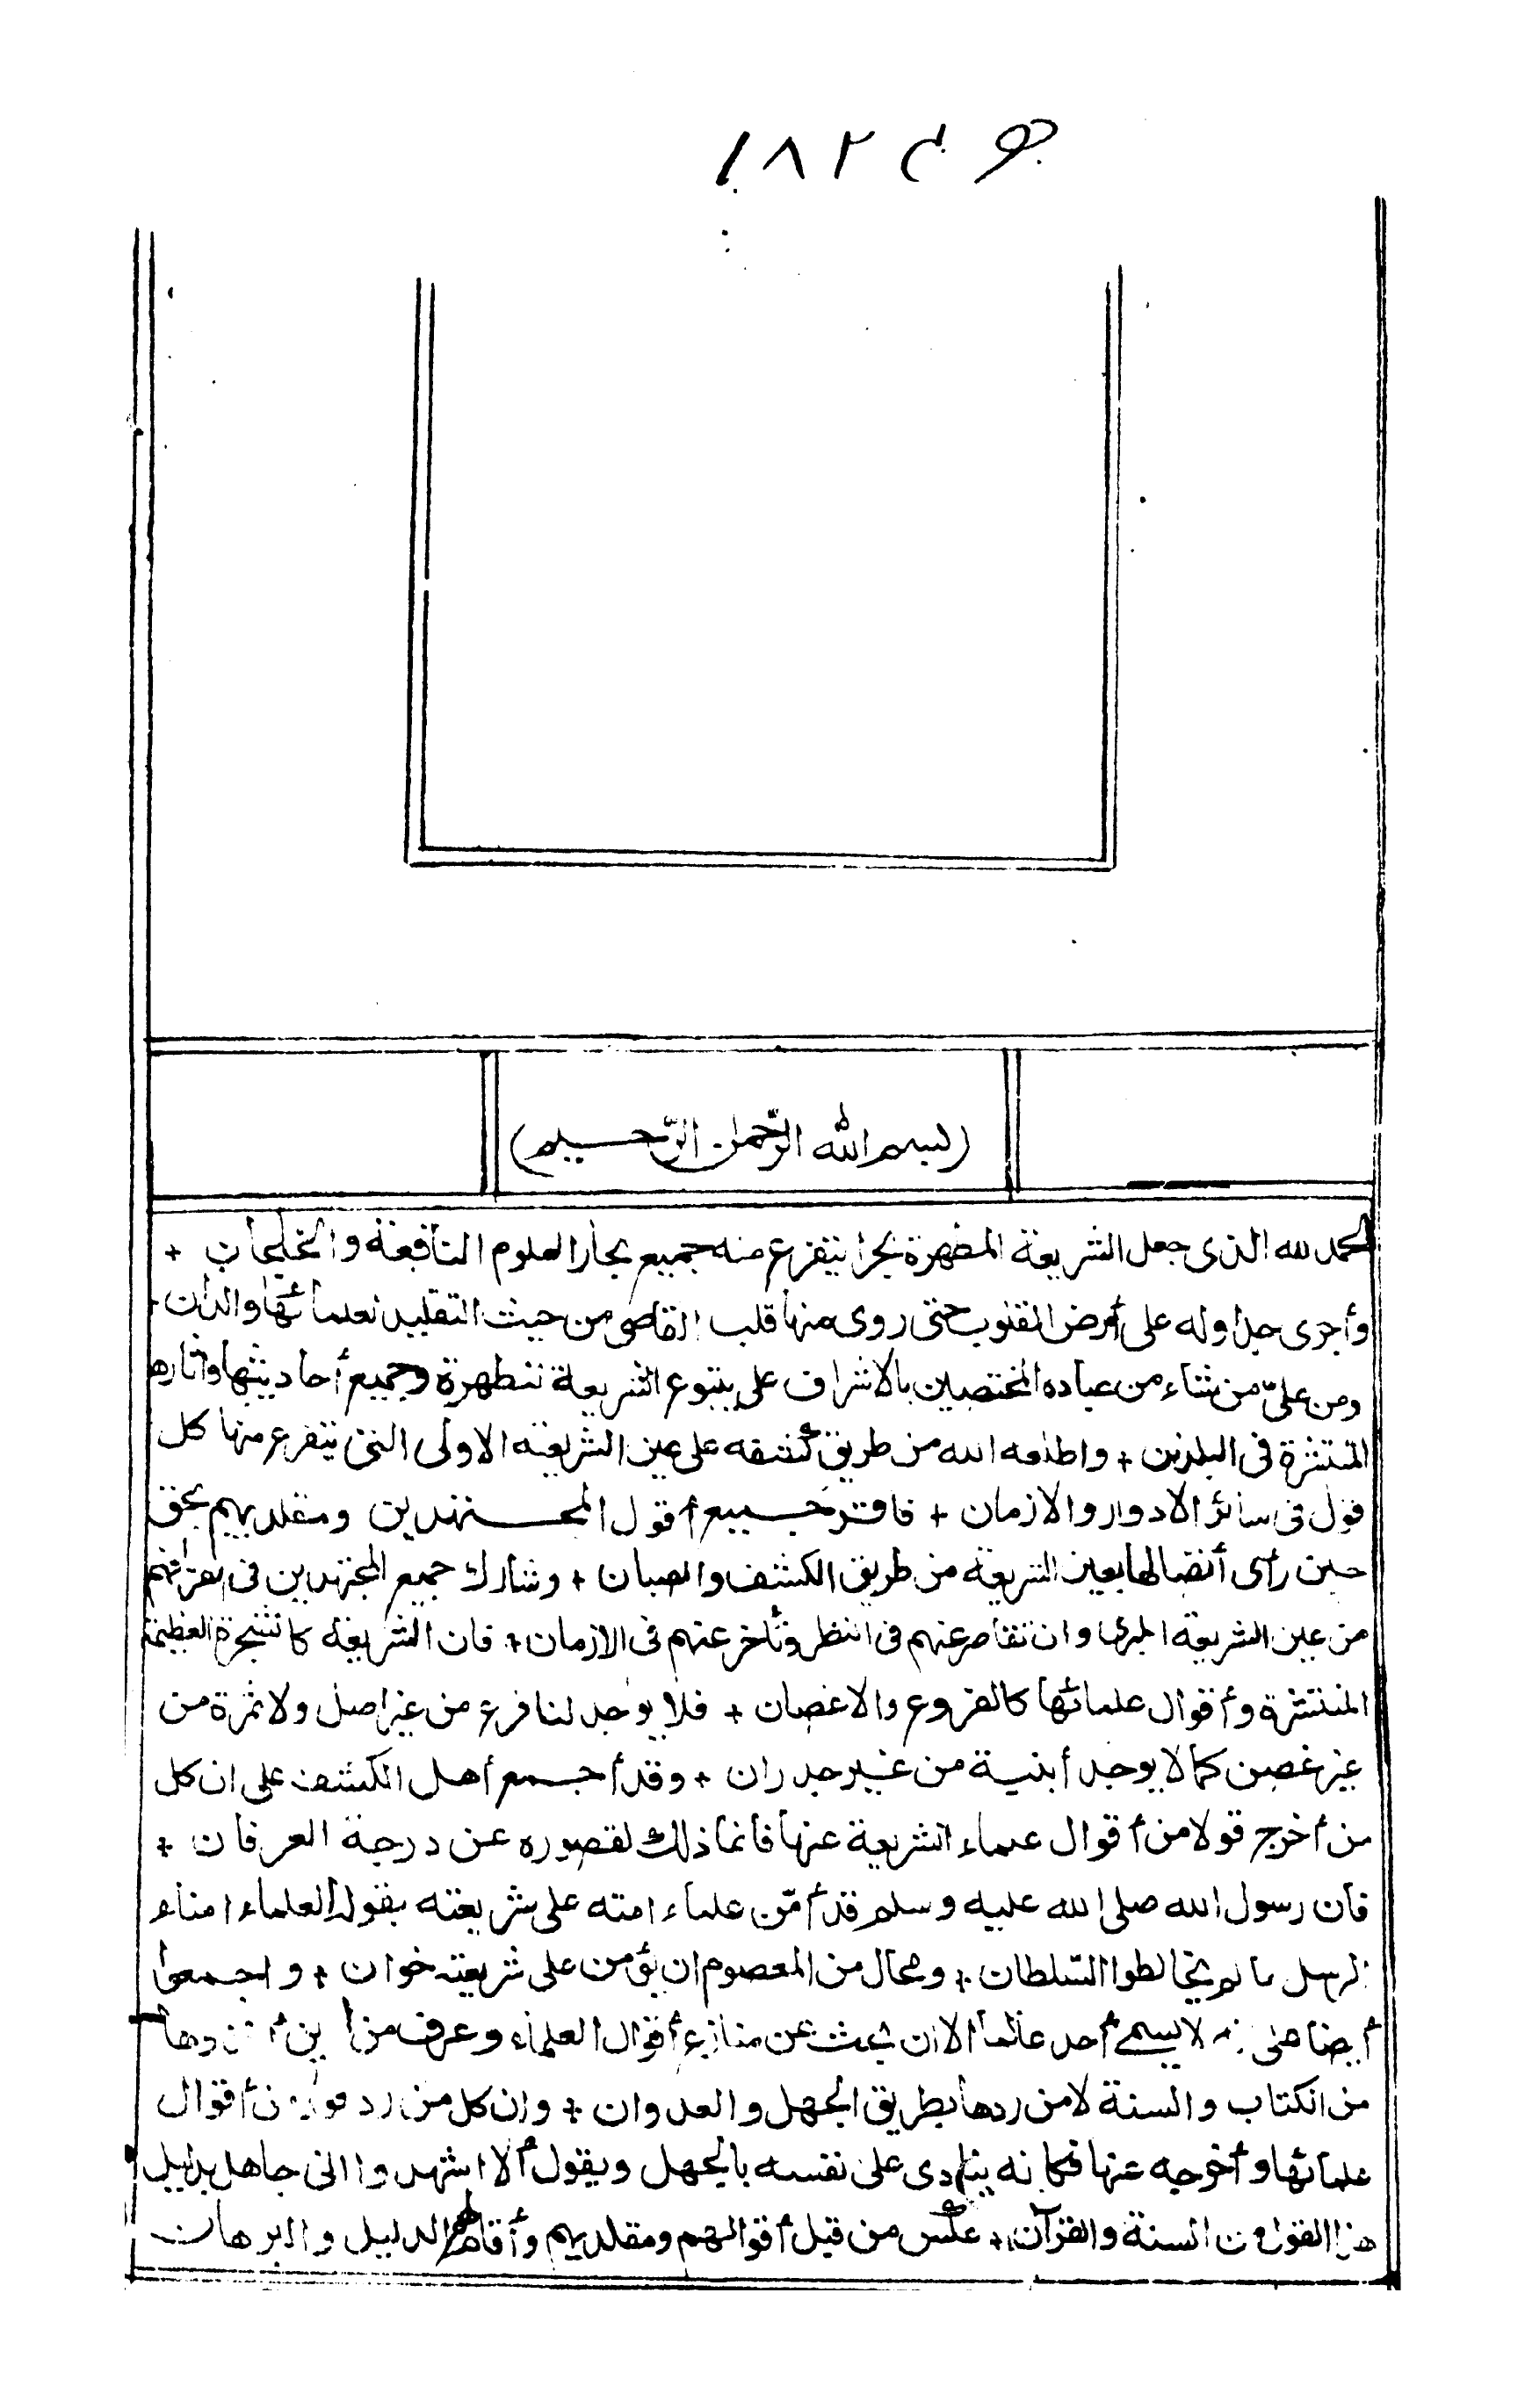 ١٨٢
(بسم الله الرّحمان الرّحسيم)
الحمد لله الذى جعل الشريعة المطهرة بحرا يتفرع منه جميع بحار العلوم النافعة والخلجان +
وأجرى جداوله على أرض القلوب حتى روى منها قلب القاصى من حيث التقليد لعلمائها والدان +
ومن على من شاء من عباده المختصين بالاشراف على ينبوع الشريعة المطهرة وجميع أحاديثها وآثارها
المنتشرة فى البلدان + واطلعه الله من طريق كشفه على عين الشريعة الاولى التى يتفرع منها كل
قول فى سائر الادوار والازمان + فاقر جميع أقول المجتهدين ومقلديهم بحق
حين رأى أتصالها بعين الشريعة من طريق الكشف والعيان + وشارك جميع المجتهدين فى اغترافهم
من عين الشريعة الكبرى وان تقاصر عنهم فى النظر وتأخر عنهم فى الازمان + فان الشريعة كالشجرة العظيمة
المنتشرة وأقوال علمائها كالفروع والاغصان + فلا يوجد لنا فرع من غير اصل ولا ثمرة من
غير غصن كما لا يوجد أبنية من غير جدران + وقد أجمع أهل الكشف على ان كل
من أخرج قولا من أقوال علماء الشريعة عنها فانما ذلك لقصوره عن درجة العرفان +
فان رسول الله صلى الله عليه وسلم قد أمّن علماء امته على شريعته بقوله العلماء امناء
الرسل ما لم يخالطوا السلطان + ومحال من المعصوم ان يؤمن على شريعته خوان + واجمعوا
أيضا على انه لا يسمى أحد عالما الا ان بحث عن منازع أقوال العلماء وعرف من أين أخذوها
من الكتاب والسنة لا من ردها بطريق الجهل والعدوان + وان كل من رد قولا من أقوال
علمائها وأخرجه عنها فكانه ينادى على نفسه بالجهل ويقول ألا اشهدوا انى جاهل بدليل
هذا القول من السنة والقرآن + عكس من قبل أقوالهم ومقلديهم وأقام لهم الدليل والبرهان